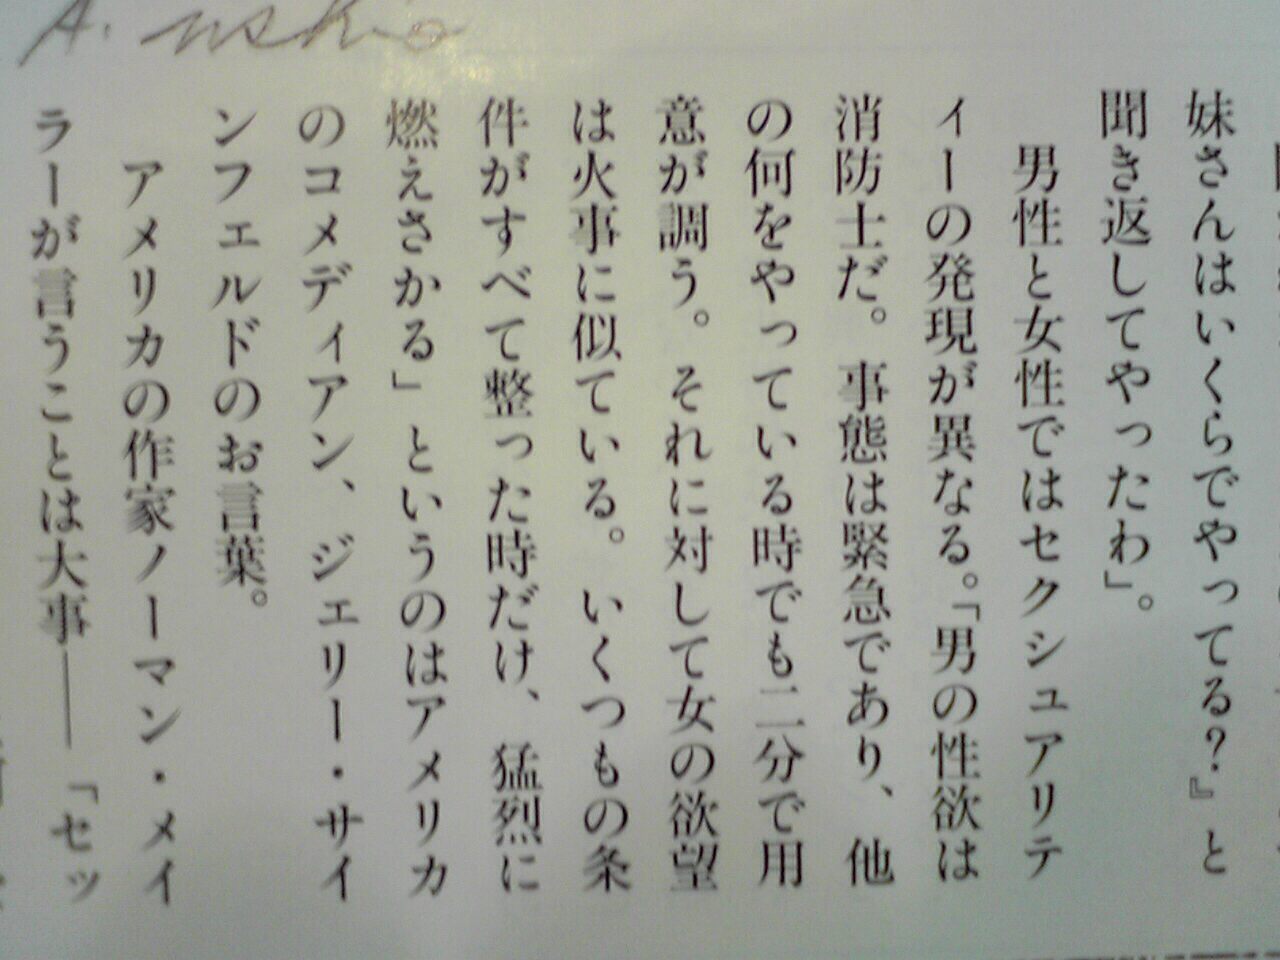 妹さんはいくらでやってる?』と
聞き返してやったわ」。
男性と女性ではセクシュアリテ
ィーの発現が異なる。「男の性欲は
消防士だ。事態は緊急であり、他
の何をやっている時でも二分で用
意が調う。それに対して女の欲望
は火事に似ている。いくつもの条
件がすべて整った時だけ、猛烈に
燃えさかる」というのはアメリカ
のコメディアン、ジェリー・サイ
ンフェルドのお言葉。
アメリカの作家ノーマン・メイ
ラーが言うことは大事――「セッ